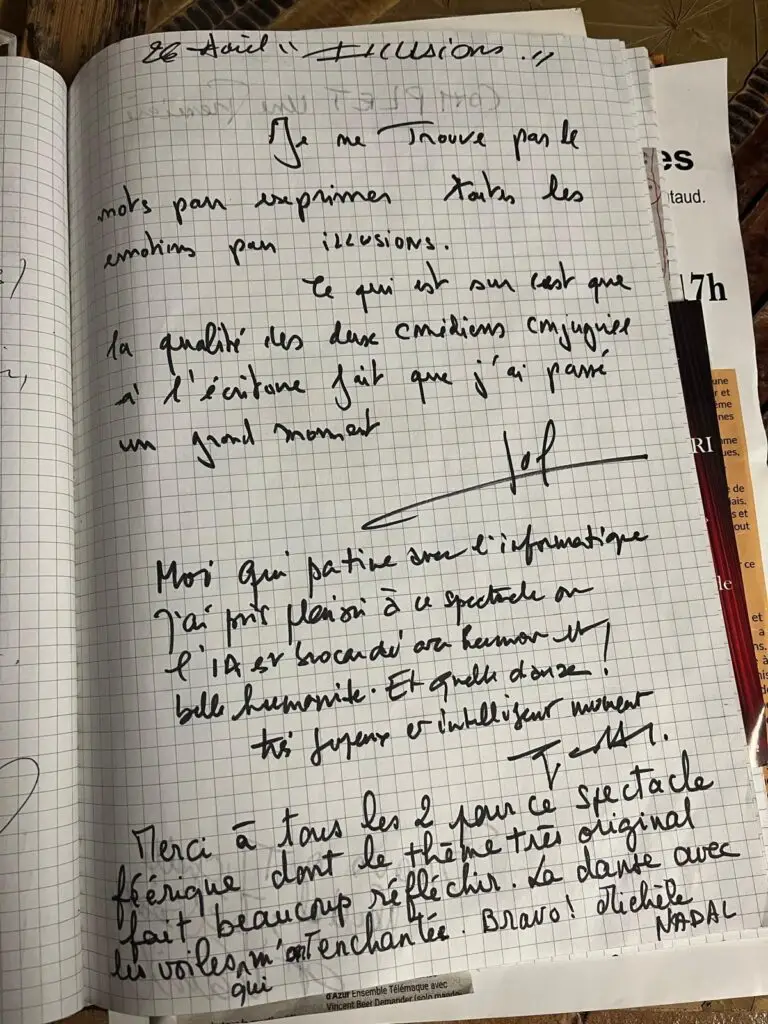 26 Avril " ILLUSIONS . "
Je me Trouve pas le
mots pour exprimer toutes les
emotions pour ILLUSIONS.
Ce qui est sur c'est que
la qualité des deux comédiens conjuguée
à l'écriture fait que j'ai passé
un grand moment
Moi qui patine avec l'informatique
J'ai pris plaisir à ce spectacle ou
l'IA est brocardé avec humour et
belle humanité. Et quelle danse !
très joyeux et intelligent moment
Merci à tous les 2 pour ce spectacle
féérique dont le thème très original
fait beaucoup réfléchir. La danse avec
les voiles m'ont enchantée. Bravo ! Michèle
qui
NADAL
es
taud.
17h
une
r et
ème
nes
me
ues,
RI
de
ais.
s et
out
ce
le
et
à
ns.
d'Azur Ensemble Télémaque avec
Vincent Beer Demander (solo mando